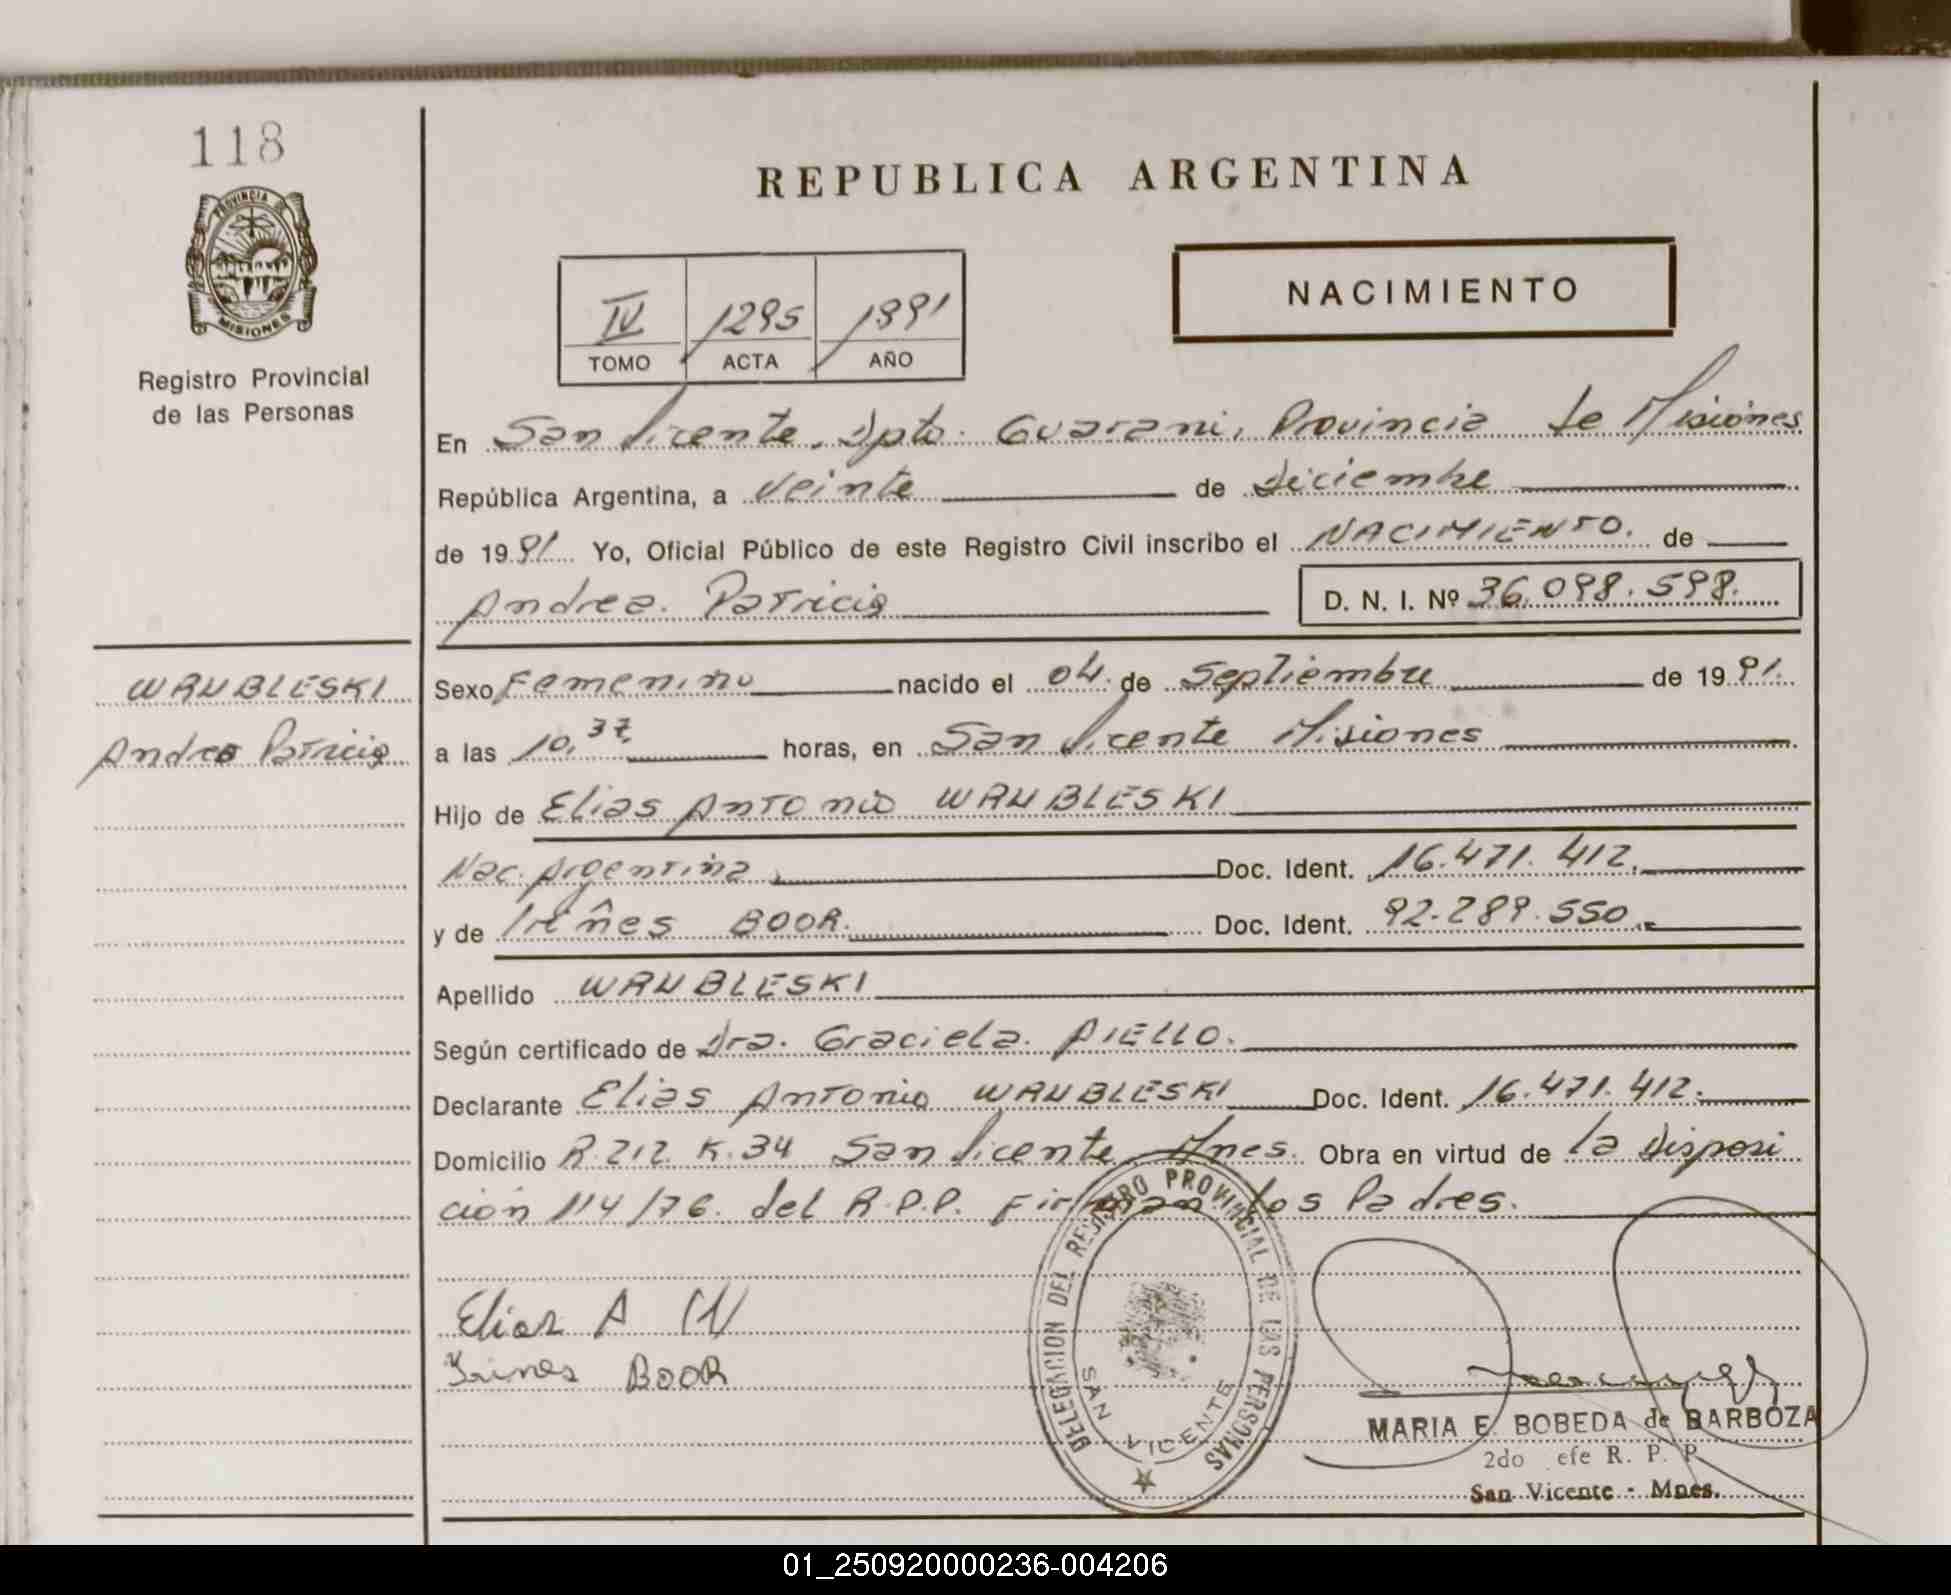 118
PROVINCIA DE
MISIONES
Registro Provincial
de las Personas
REPUBLICA ARGENTINA
IV 1295 1991
TOMO ACTA AÑO
NACIMIENTO
En San Vicente. Dpto. Guarani, Provincia de Misiones
República Argentina, a Veinte de Diciembre
de 1991 Yo, Oficial Público de este Registro Civil inscribo el NACIMIENTO. de
Andrea. Patricia D. N. I. Nº 36.098.598.
WRUBLESKI
Andrea Patricia
Sexo Femenino nacido el 04. de Septiembre de 1991.
a las 10,37. horas, en San Vicente Misiones
Hijo de Elias Antonio WRUBLESKI
Nac. Argentina, Doc. Ident. 16.471.412.
y de Irênes BOOR. Doc. Ident. 92.289.550.-
Apellido WRUBLESKI
Según certificado de Dra. Graciela. AIELLO.
Declarante Elias Antonio WRUBLESKI Doc. Ident. 16.471.412.
Domicilio R.212 K.34 San Vicente Mnes. Obra en virtud de la Disposi
ción 114/76. del R.P.P. Firman los Padres.
Elias A W
Irines BOOR
DELEGACION DEL REGISTRO PROVINCIAL DE LAS PERSONAS
SAN VICENTE
MARIA E. BOBEDA de BARBOZA
2do efe R. P. P.
San Vicente - Mnes.
01_250920000236-004206